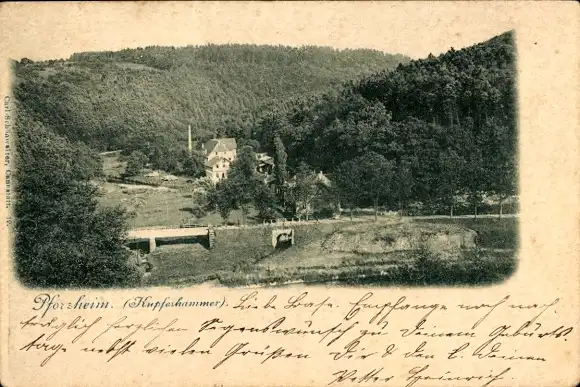 Pforzheim. (Kupferhammer). Liebe Base. Empfange noch nach
träglich herzlichen Segenswunsch zu Deinem Geburts
tage nebst vielen Grüßen Dir & den l. Deinen
Vetter Heinrich